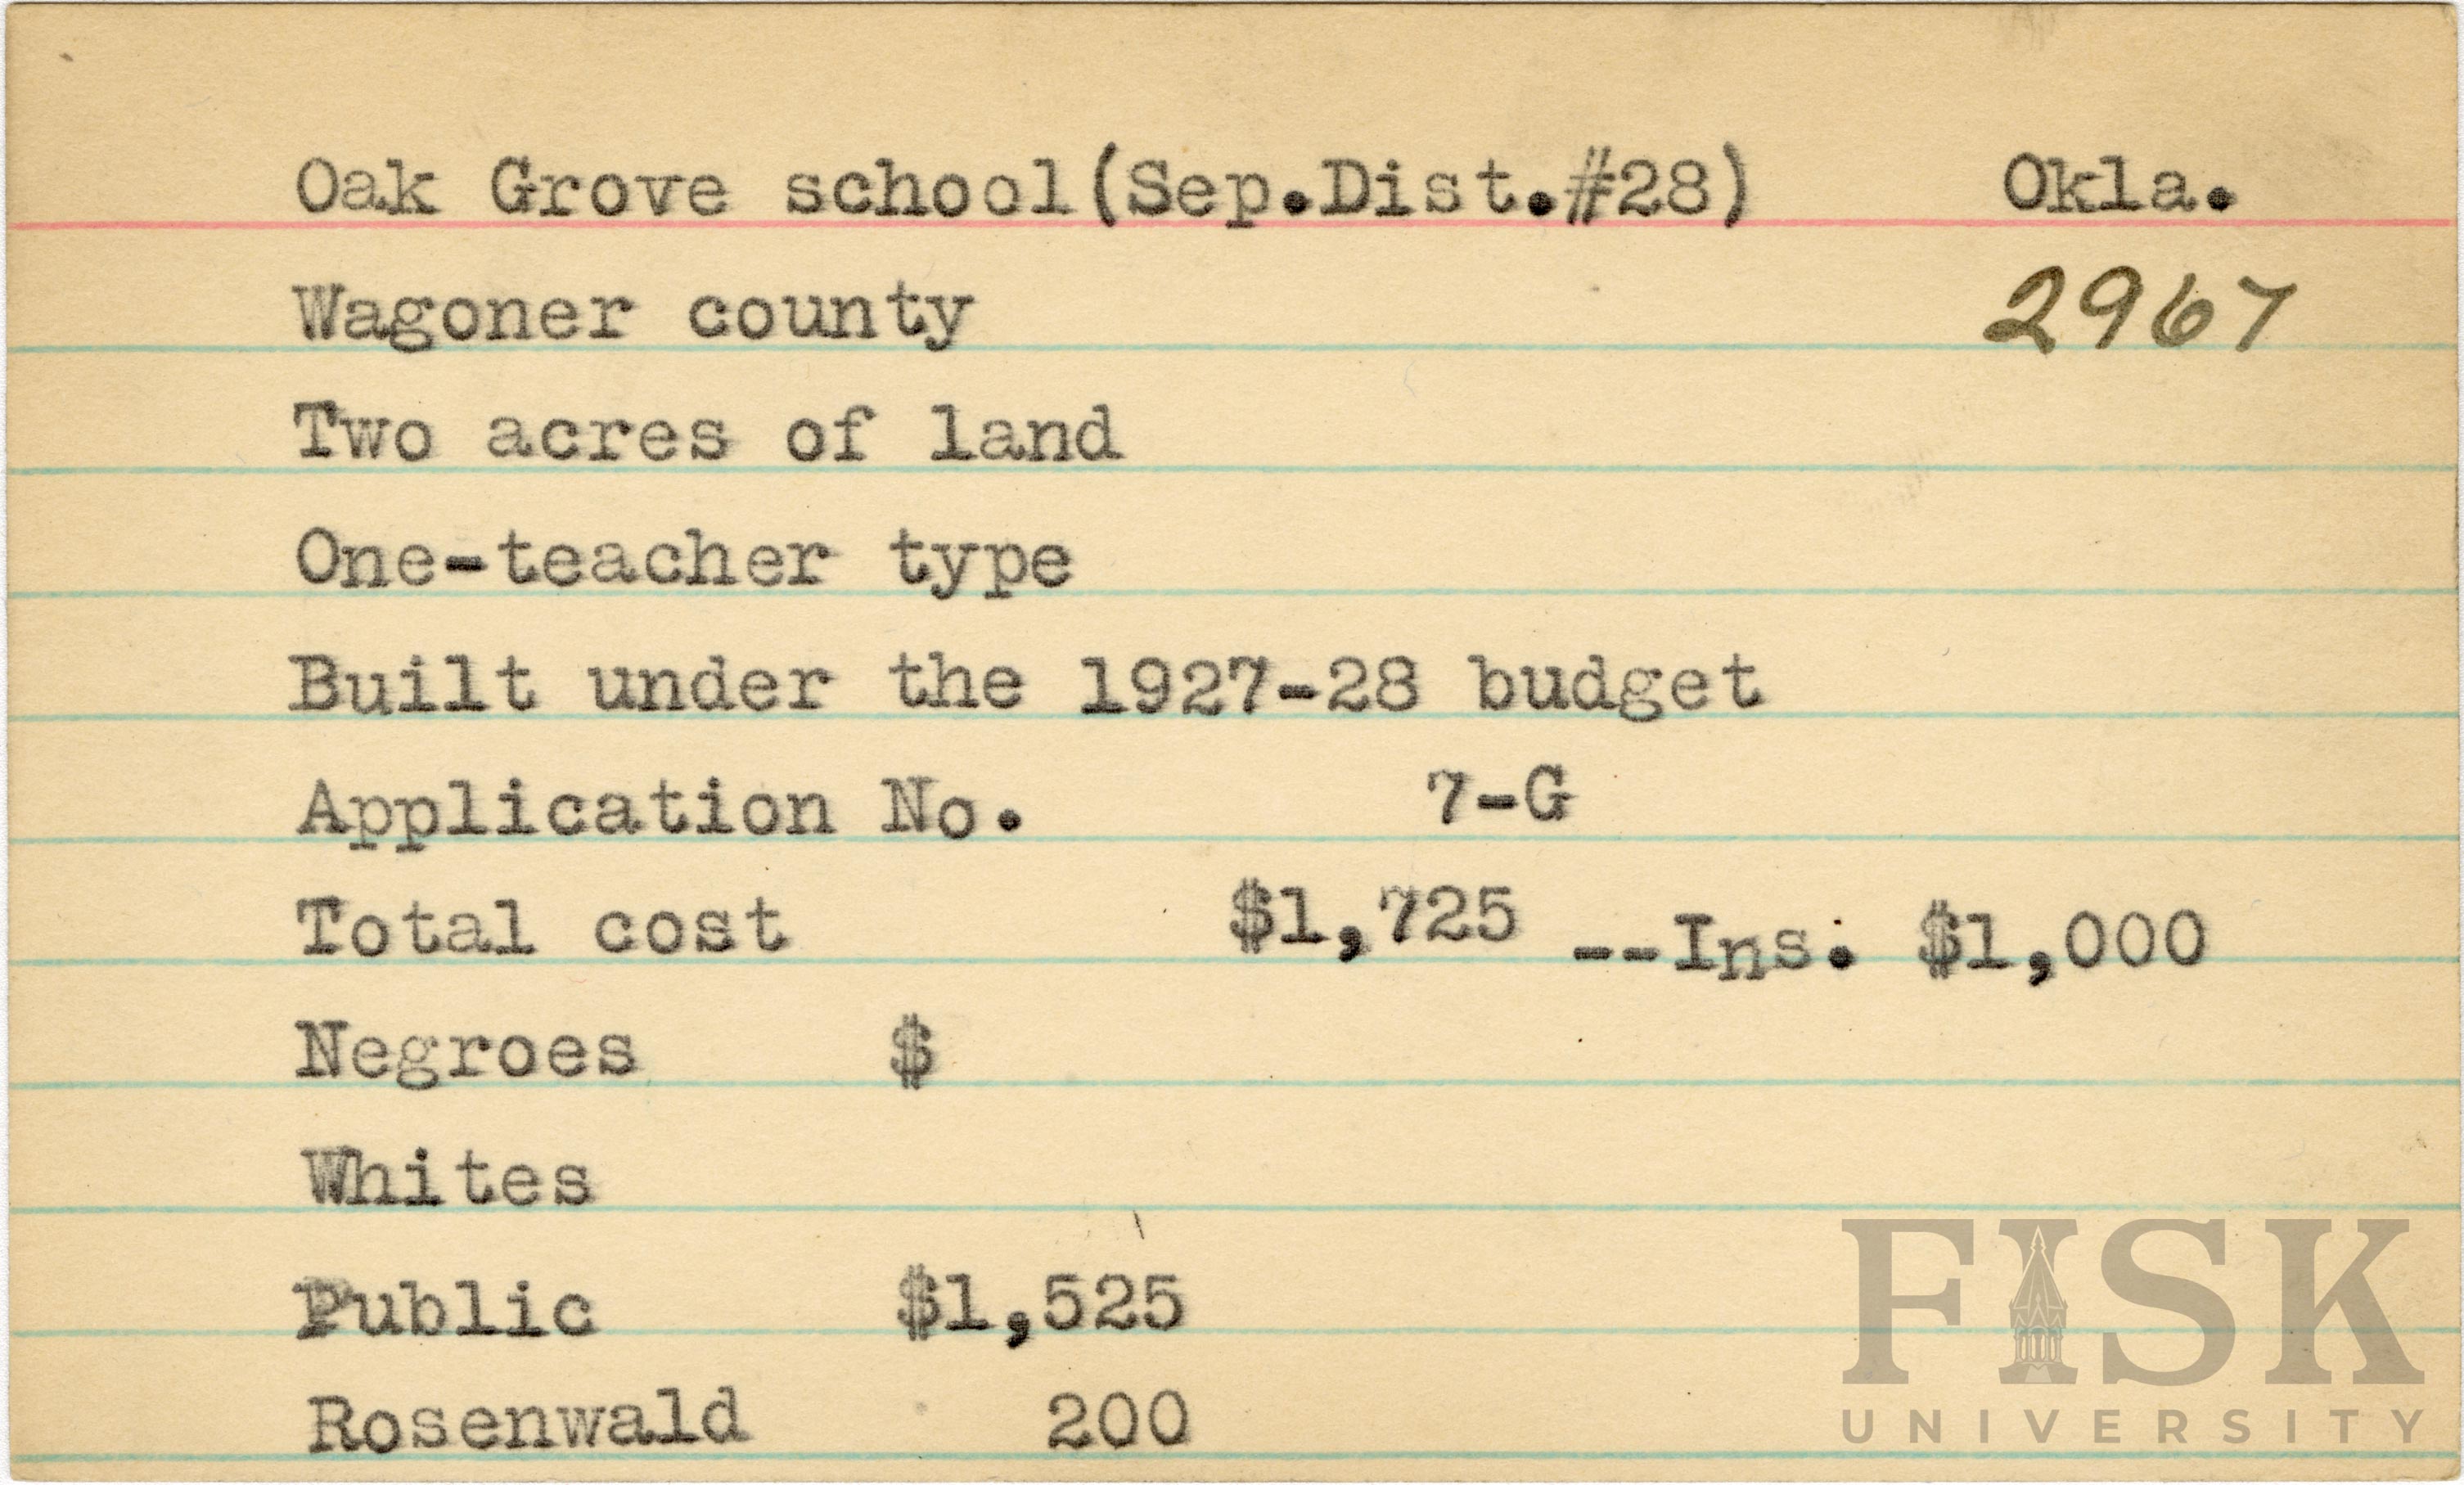 Oak Grove school(Sep.Dist.#28) Okla.
Wagoner county 2967
Two acres of land
One-teacher type
Built under the 1927-28 budget
Application No. 7-G
Total cost $1,725 --Ins. $1,000
Negroes $
Whites
Public $1,525
Rosenwald 200
FISK
UNIVERSITY